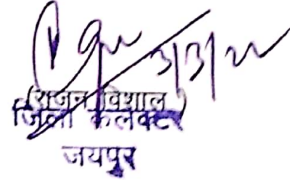 3/3/22
(राजन विशाल)
जिला कलक्टर
जयपुर